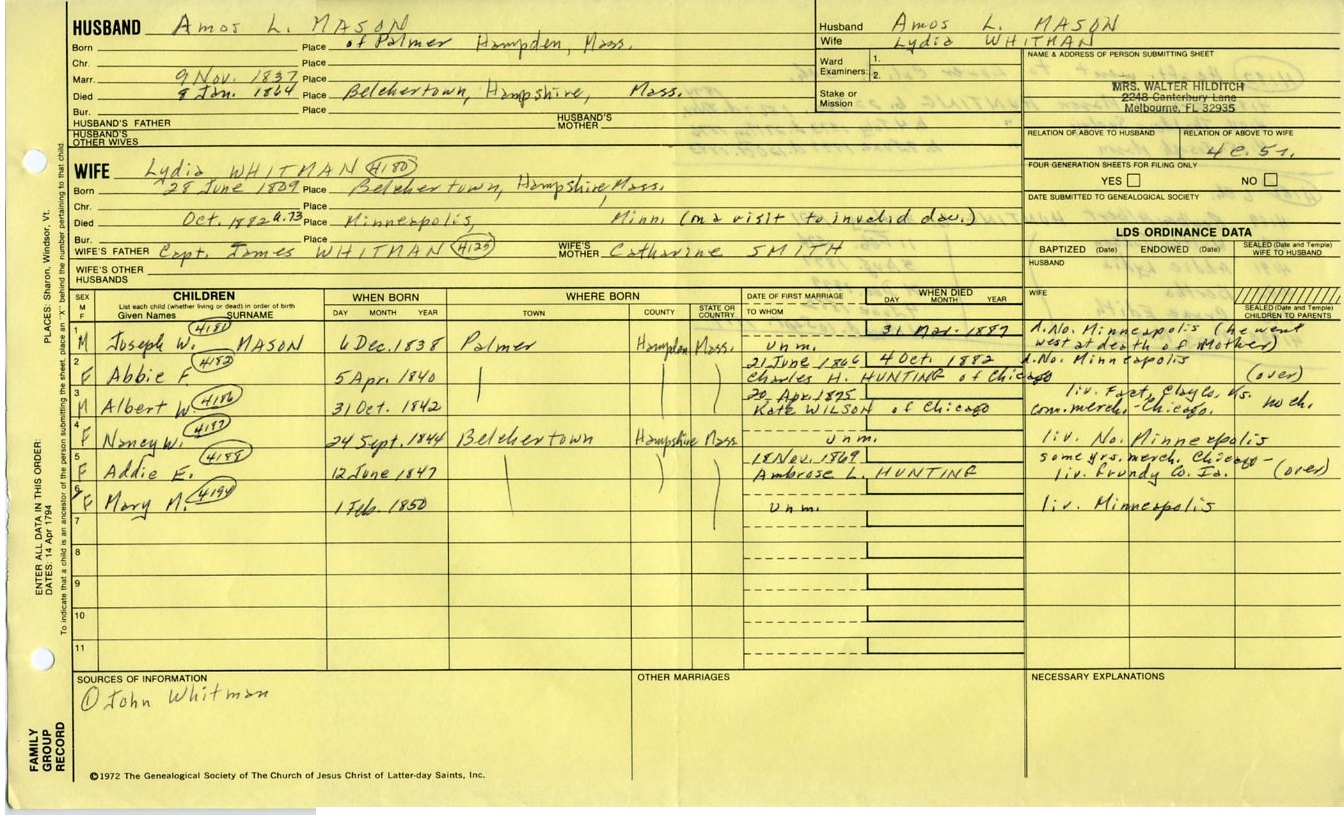 HUSBAND Amos L. MASON
Born Place of Palmer Hampden, Mass.
Chr. Place
Marr. 9 Nov. 1837 Place
Died 8 Jan. 1864 Place Belchertown, Hampshire, Mass.
Bur. Place
HUSBAND'S FATHER HUSBAND'S MOTHER
HUSBAND'S OTHER WIVES
Husband Amos L. MASON
Wife Lydia WHITMAN
Ward Examiners: 1. 2.
Stake or Mission
NAME & ADDRESS OF PERSON SUBMITTING SHEET
MRS. WALTER HILDITCH
2248 Canterbury Lane
Melbourne, FL 32935
RELATION OF ABOVE TO HUSBAND RELATION OF ABOVE TO WIFE
4 C. 5 r.
FOUR GENERATION SHEETS FOR FILING ONLY
YES NO
DATE SUBMITTED TO GENEALOGICAL SOCIETY
WIFE Lydia WHITMAN 4180
Born 28 June 1809 Place Belchertown, Hampshire, Mass.
Chr. Place
Died Oct. 1882 a. 73 Place Minneapolis, Minn. (on a visit to invalid dau.)
Bur. Place
WIFE'S FATHER Capt. James WHITMAN 4125 WIFE'S MOTHER Catharine SMITH
WIFE'S OTHER HUSBANDS
LDS ORDINANCE DATA
BAPTIZED (Date) ENDOWED (Date) SEALED (Date and Temple) WIFE TO HUSBAND
HUSBAND
WIFE
SEALED (Date and Temple) CHILDREN TO PARENTS
SEX M F CHILDREN List each child (whether living or dead) in order of birth Given Names SURNAME WHEN BORN DAY MONTH YEAR WHERE BORN TOWN COUNTY STATE OR COUNTRY DATE OF FIRST MARRIAGE TO WHOM WHEN DIED DAY MONTH YEAR
1 4181 31 Mar. 1887 d. No. Minneapolis (he went
M Joseph W. MASON 6 Dec. 1838 Palmer Hampden Mass. Unm. west at death of Mother)
2 4182 21 June 1866 4 Oct. 1882 d. No. Minneapolis
F Abbie F. 5 Apr. 1840 Charles H. HUNTING of Chicago (over)
3 4186 20 Apr. 1875 liv. Ks.
M Albert W. 31 Oct. 1842 Kate WILSON of Chicago com. merch. - Chicago. no ch.
4 4187
F Nancy W. 24 Sept. 1844 Belchertown Hampshire Mass. unm. liv. No. Minneapolis
5 4188 18 Nov. 1869 some yrs. merch. Chicago -
F Addie E. 12 June 1847 Ambrose L. HUNTING liv. Grundy Co. Ia. (over)
6 4194
F Mary M. 1 Feb. 1850 Unm. liv. Minneapolis
7
8
9
10
11
SOURCES OF INFORMATION
① John Whitman
OTHER MARRIAGES
NECESSARY EXPLANATIONS
©1972 The Genealogical Society of The Church of Jesus Christ of Latter-day Saints, Inc.
FAMILY GROUP RECORD
ENTER ALL DATA IN THIS ORDER:
DATES: 14 Apr 1794
PLACES: Sharon, Windsor, Vt.
To indicate that a child is an ancestor of the person submitting the sheet, place an "X" behind the number pertaining to that child.